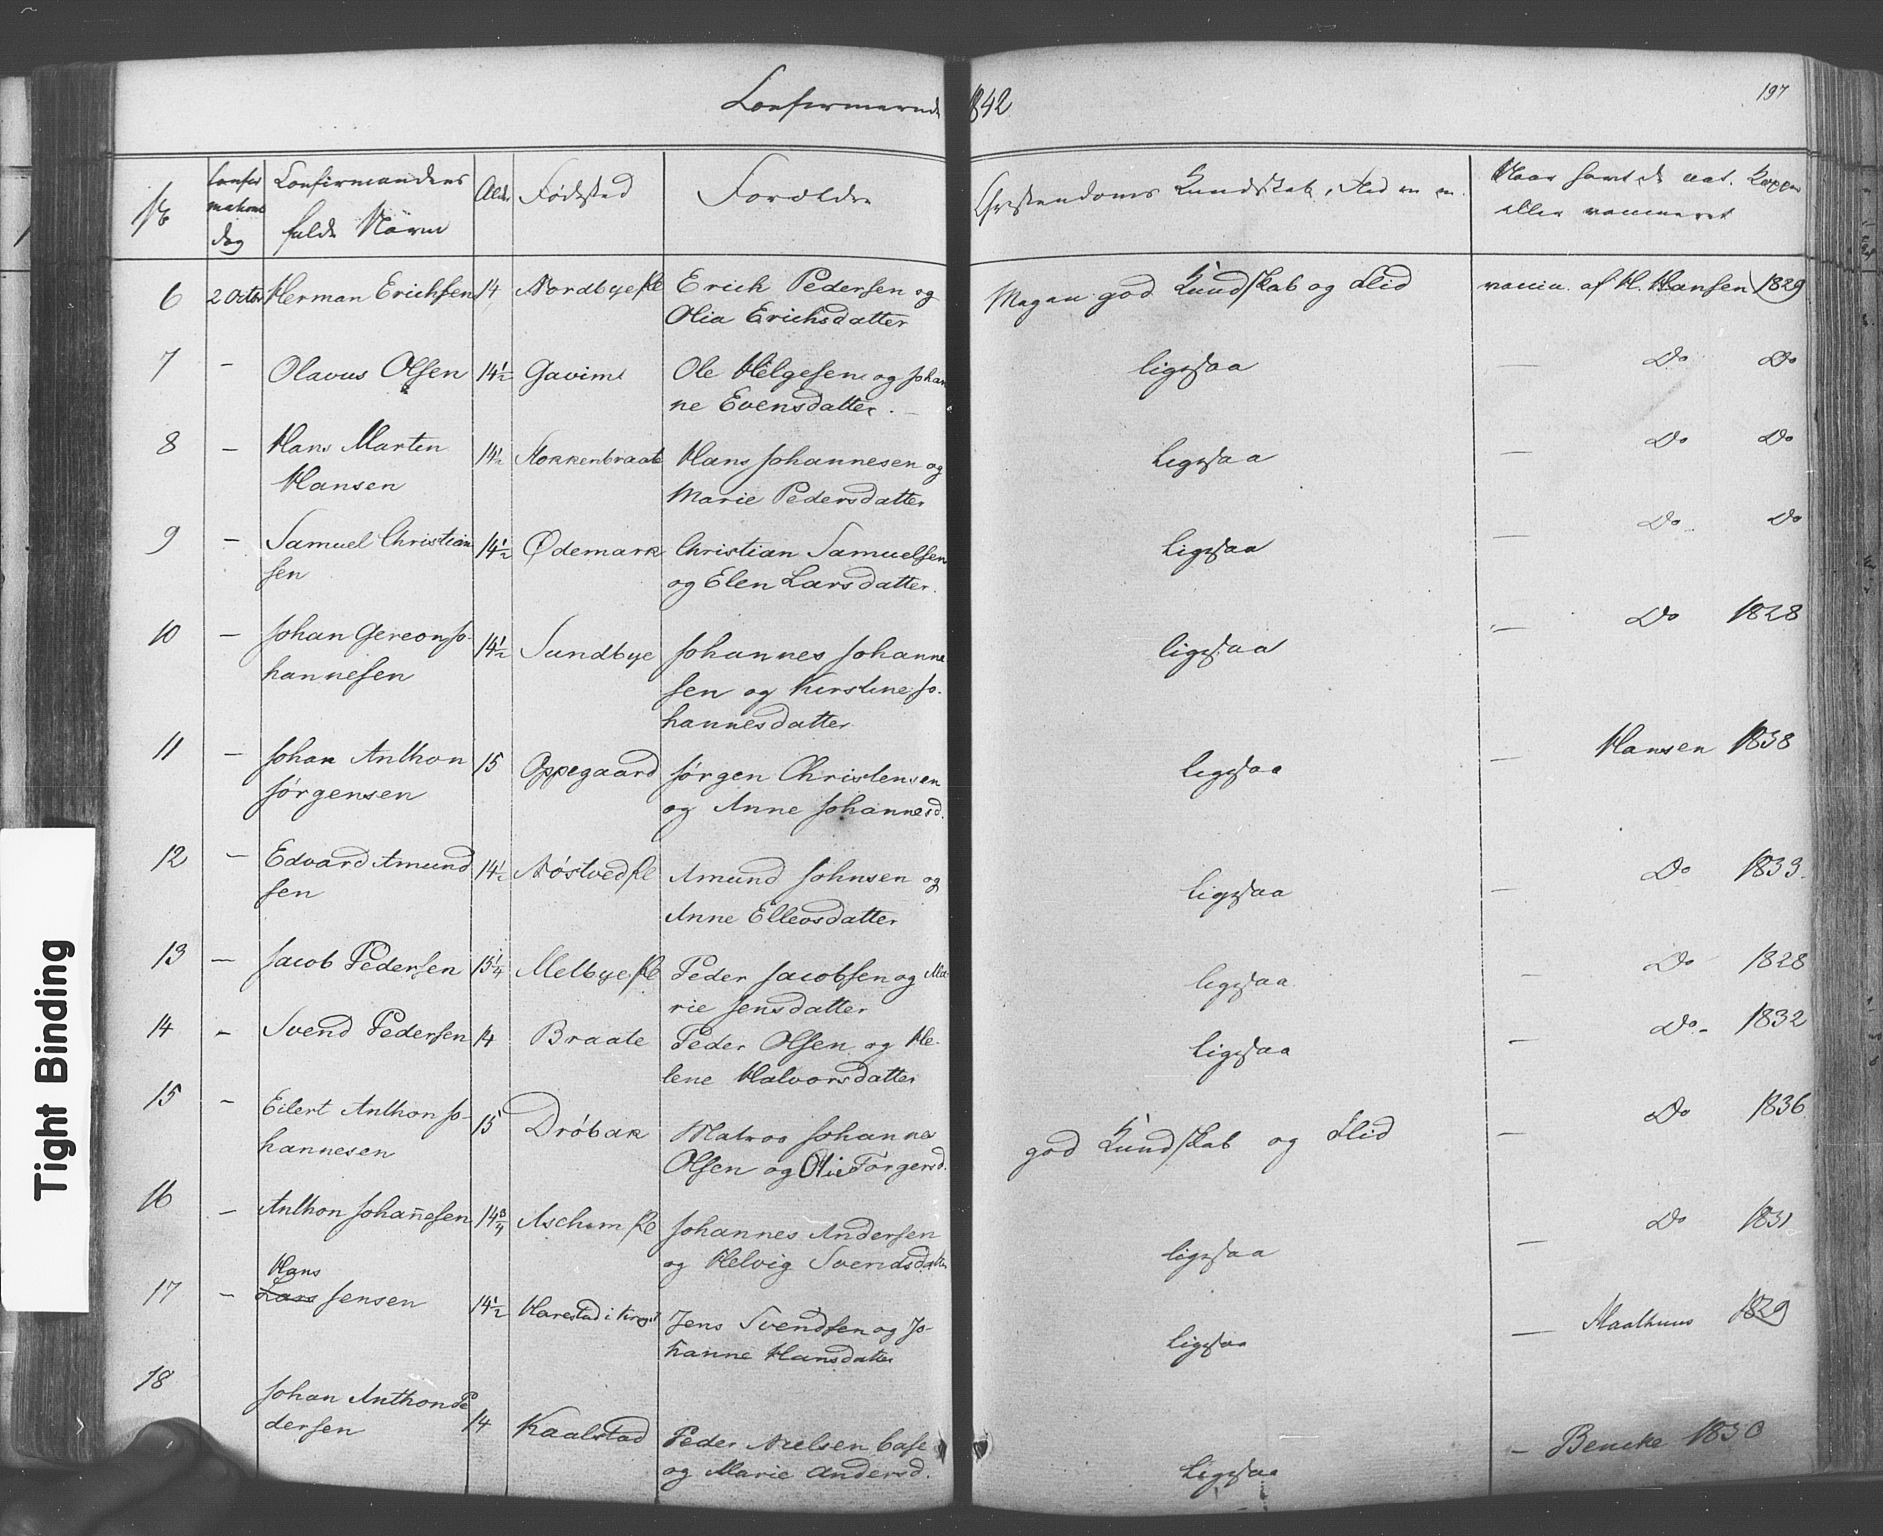 Confirmerede 1842
197
№ Confirmations dag Confirmandens fulde Navne Alder Fødested Foreldre Christendoms Kundskab, Flid m. m. Naar havt de nat. Kopper eller vaccineret
6 2 Octbr Herman Erichsen 14 Nordbye Erick Pedersen og Megen god Kundskab og Flid vaccin. af H. Hansen 1829
Olia Erichsdatter
7 – Olavus Olsen 14½ Gavim Ole Helgesen og Johan ligesaa — Do Do
ne Evensdatter. —
8 – Hans Marten 14½ Stokkenbraate Hans Johannesen og ligesaa — Do Do
Hansen Marie Pedersdatter
9 – Samuel Christian 14½ Ødemark Christian Samuelsen ligesaa — Do Do
sen og Elen Larsdatter.
10 – Johan Gereon Jo- 14½ Sundbye Johannes Johanne ligesaa — Do 1828
hannesen sen og Kirstine Jo-
hannesdatter
11 – Johan Anthon 15 Oppegaard Jørgen Christensen ligesaa — Hansen 1838
Jørgensen og Anne Johannesd.
12 – Edvard Amund 14½ Nøstved Amund Johnsen og ligesaa — Do 1833.
sen Anne Ellevsdatter
13 – Jacob Pedersen 15¼ Melbye Peder Jacobsen og Ma- ligesaa — Do 1828
rie Jensdatter
14 – Svend Pedersen 14 Braate Peder Olsen og He- ligesaa — Do 1832
lene Halvorsdatter
15 – Eilert Anthon Jo- 15 Drøbak Matros Johannes god Kundskab og Flid — Do 1836
hannesen Olsen og Olie Torgersd.
16 – Anthon Johan̄esen 14¾ Aschim Johannes Andersen ligesaa — Do 1831
og Helvig Svendsdatter
Hans
17 – Lars Jensen 14½ Harestad i Jens Svendsen og Jo- ligesaa — Maathuus 1829
hanne Hansdatter
18 Johan Anthon Pe 14 Kaalstad Peder Nielsen ligesaa – Bencke 1830
dersen og Marie Andersd.
Tight Binding